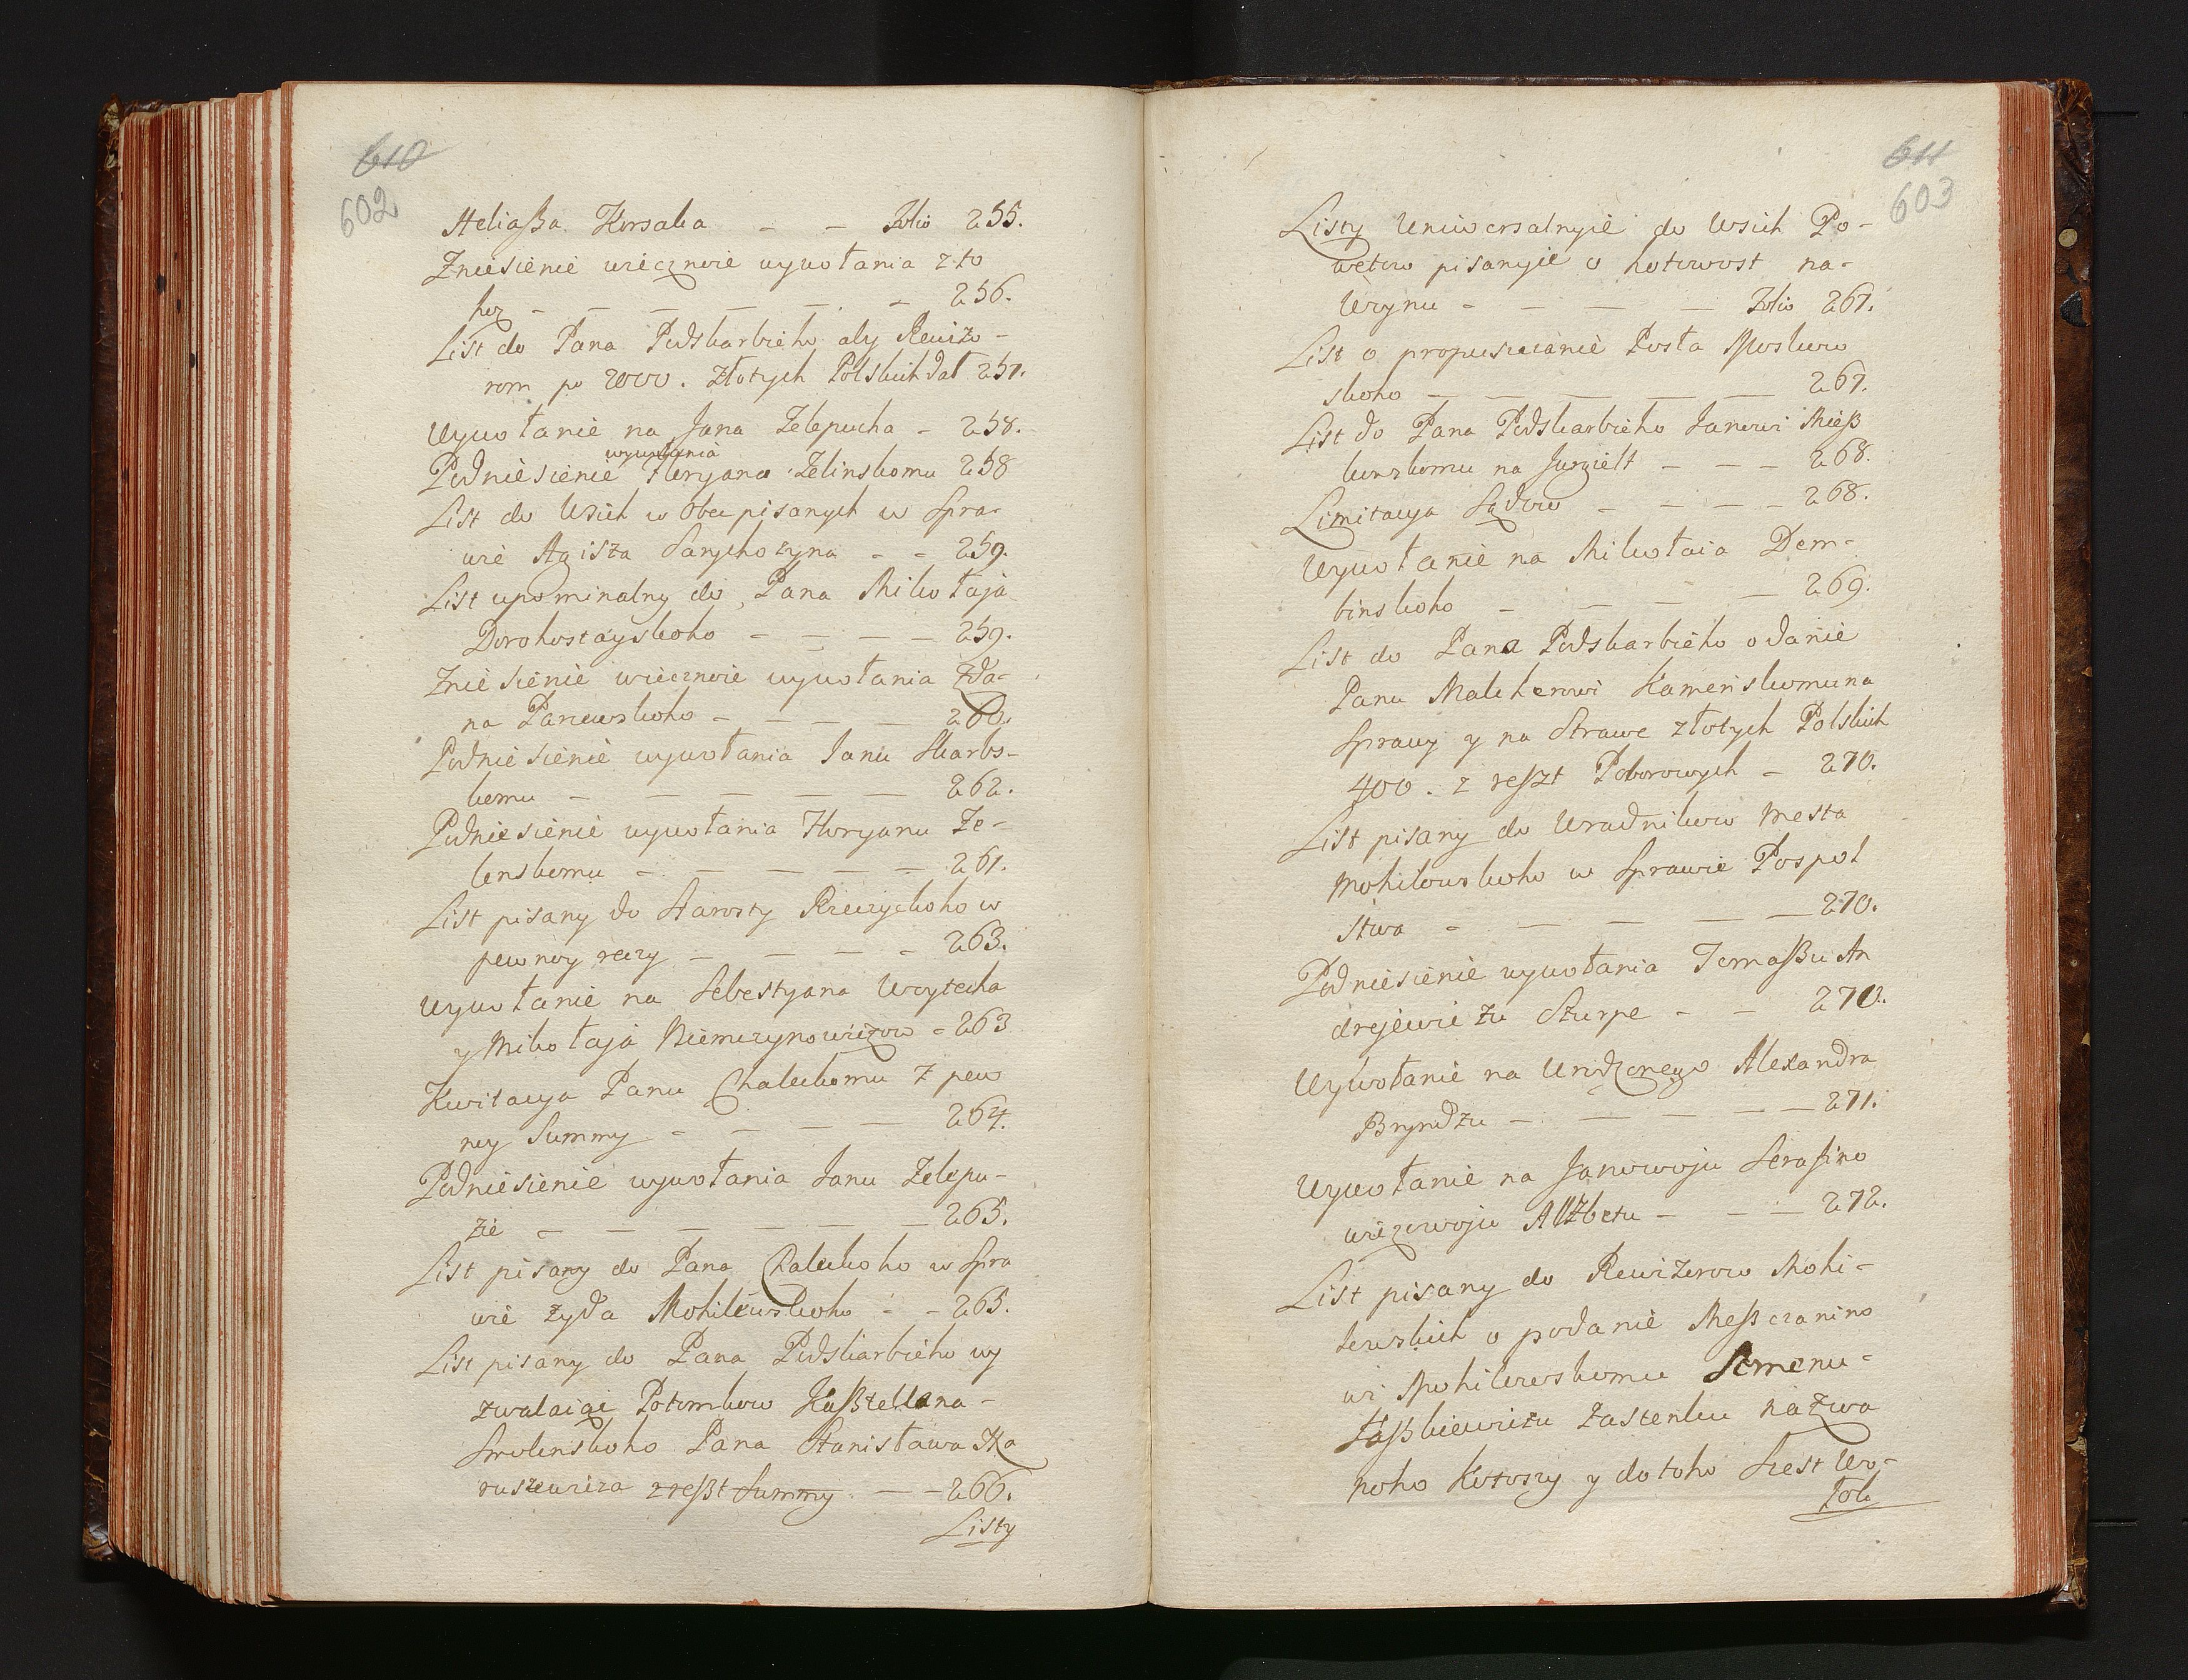 610
602
Heliaßa Korsaka - - Folio 255.
Zniesienie wiecznoie wywołania z to
hoz - - - - - - 256.
List do Pana Podskarbieho aby Rewizo-
rom po 2000. złotych Polskich dał 257.
Wywołanie na Jana Zelepucha - 258.
wywołania
Podniesienie Floryana Zelinskomu 258
List do Wsich w Obec pisanych w Spra-
wie Agisza Sanychozyna - - 259.
List upominalny do Pana Mikołaja
Dorohostayskoho - - - - 259.
Zniesienie wiecznoie wywołania Zda-
na Parcewskoho - - - - 260.
Podniesienie wywołania Janu Skarbs-
komu - - - - - 262.
Podniesienie wywołania Floryanu Ze-
lenskomu - - - - - 261.
List pisany do Starosty Krewyckoho w
pewnoy reczy - - - - 263.
Wywołanie na Sebestyana Woytecha
y Mikołaja Niemczynowiczow - 263
Kwitacya Panu Chaleckomu z pew
ney Summy - - - - 264.
Podniesienie wywołania Janu Zelepu-
zie - - - - - - 265.
List pisany do Pana Chaleckoho w Spra
wie żyda Mohilewskoho - - 265.
List pisany do Pana Podskarbieho wy
zwalaiąc Potomkow Kaßtellana-
Smolenskoho Pana Stanisława Ka
ruszewicza z reßt Summy - - 266.
Listy
611
603
Listy Uniwersalnyie do Wsich Po-
wetow pisanyie o hotowost na-
Woynu - - - - Folio 267.
List o propusczanie Posła Moskow
skoho - - - - - 267.
List do Pana Podskarbieho Janowi Mieß
konskomu na Jurgielt - - - 268.
Limitacya Sądow - - - - 268.
Wywołanie na Mikołaia Dem-
binskoho - - - - 269.
List do Pana Podskarbieho o danie
Panu Malcherowi Kamenskomu na
Sprawy y na Strawe złotych Polskich
400. z reszt Poborowych - 270.
List pisany do Uradnikow Mesta
Mohilowskoho w Sprawie Pospol
stwa - - - - - 270.
Podniesienie wywołania Tomaßu An
drejewiczu Szurpe - - 270.
Wywołanie na Urodzonego Alexandra
Bryndzu - - - - - 271.
Wywołanie na Janowoju Serafino
wiczowoju Alżbetu - - - 272.
List pisany do Rewizorow Mohi-
lewskich o podanie Meßczanino
wi Mohilewskomu Semenu-
Jaßkiewiczu Zastenku nazwa
noho Kotoszy y do toho Szest Wo-
łok